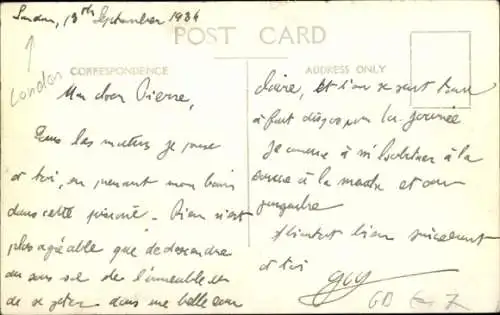 London, 13th September 1934
POST CARD
London
CORRESPONDENCE
ADDRESS ONLY
Mon cher Pierre,
Tous les matins je pense
à toi, en prenant mon bain
dans cette piscine. Rien n'est
plus agréable que de descendre
au sous sol de l'immeuble et
de se jeter dans une belle eau
claire, et l'on se sent tout
à fait dispos pour la journée
Je commence à m'habituer à la
à la
et au
bien sincèrement
à toi
Guy
GB